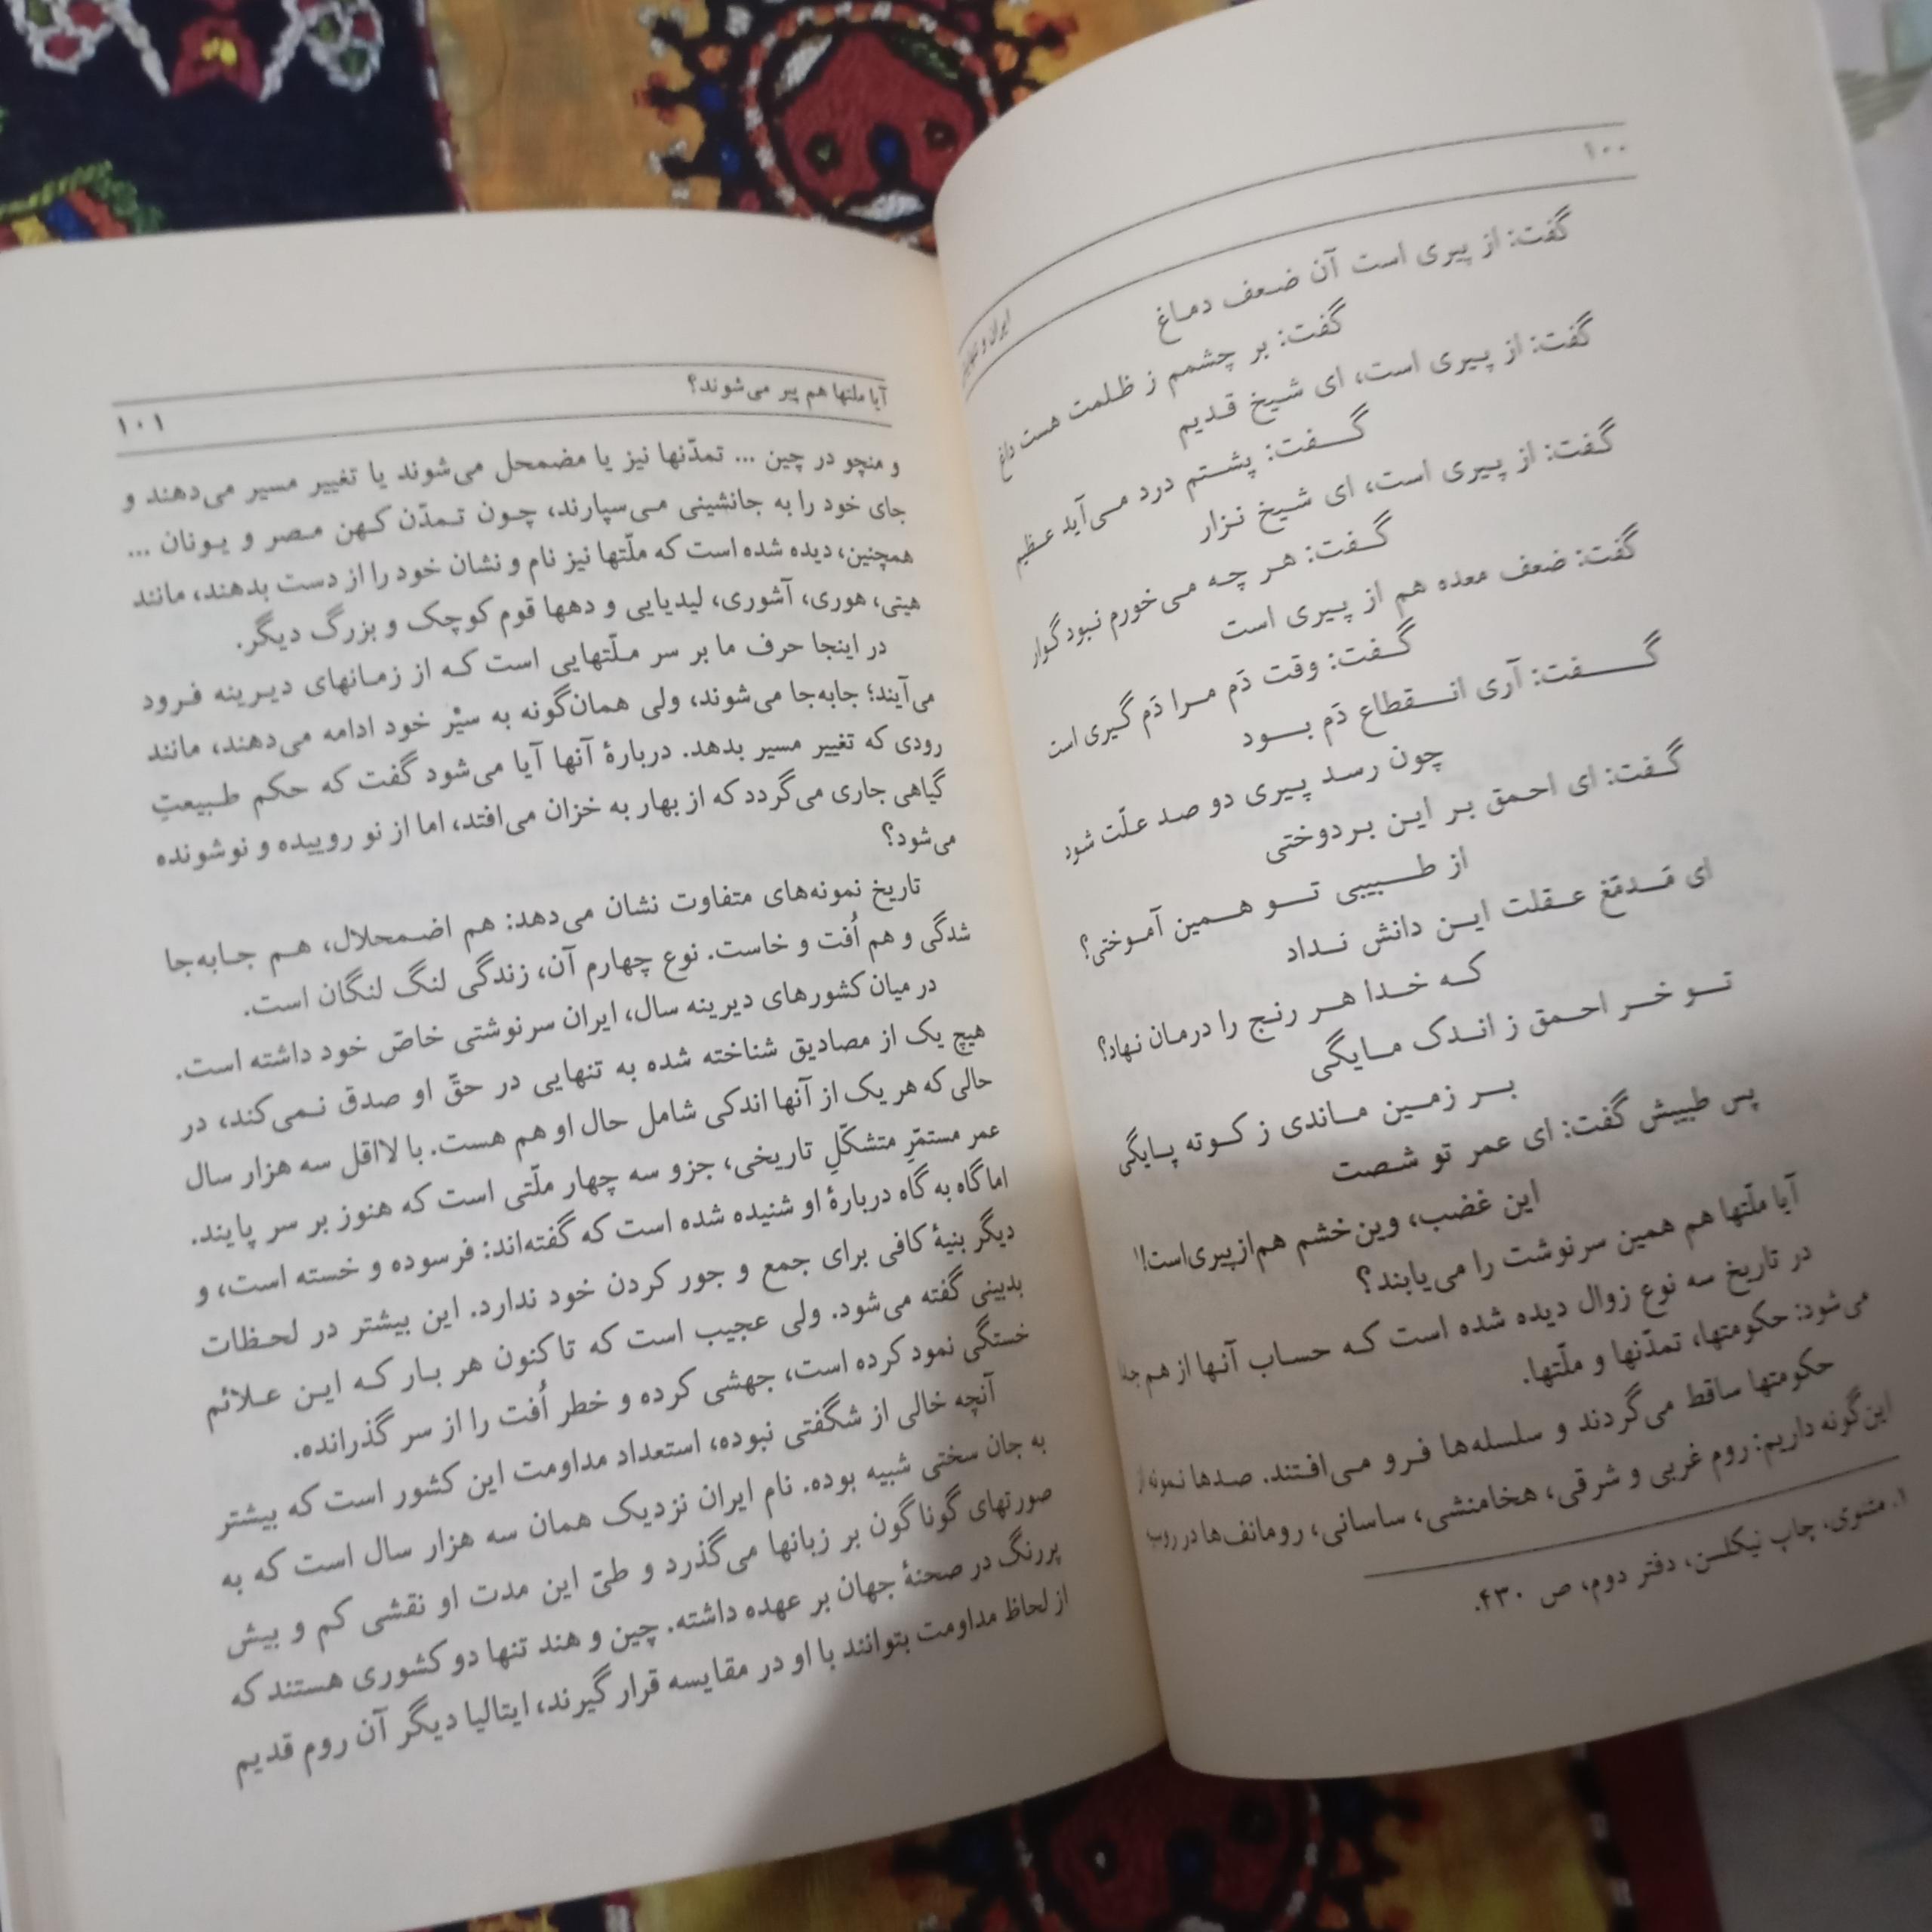 ۱۰۰
ایران و
گفت: از پیری است آن ضعف دماغ
گفت: بر چشمم ز ظلمت هست داغ
گفت: از پیری است، ای شیخ قدیم
گفت: پشتم درد می‌آید عظیم
گفت: از پیری است، ای شیخ نزار
گفت: هر چه می‌خورم نبود گوار
گفت: ضعف معده هم از پیری است
گفت: وقت دَم مرا دَم گیری است
گفت: آری انقطاع دَم بود
چون رسد پیری دو صد علّت شود
گفت: ای احمق بر این بردوختی
از طبیبی تو همین آموختی؟
ای مَدمّغ عقلت این دانش نداد
که خدا هر رنج را درمان نهاد؟
تو خر احمق ز اندک مایگی
بر زمین ماندی ز کوته پایگی
پس طبیبش گفت: ای عمر تو شصت
این غضب، وین خشم هم از پیری است!۱
آیا ملّتها هم همین سرنوشت را می‌یابند؟
در تاریخ سه نوع زوال دیده شده است که حساب آنها از هم جدا
می‌شود: حکومتها، تمدّنها و ملّتها.
حکومتها ساقط می‌گردند و سلسله‌ها فرو می‌افتند. صدها نمونه از
این‌گونه داریم: روم غربی و شرقی، هخامنشی، ساسانی، رومانف‌ها در
۱. مثنوی، چاپ نیکلسن، دفتر دوم، ص ۴۳۰.
آیا ملتها هم پیر می‌شوند؟ ۱۰۱
و منچو در چین ... تمدّنها نیز یا مضمحل می‌شوند یا تغییر مسیر می‌دهند و
جای خود را به جانشینی می‌سپارند، چون تمدّن کهن مصر و یونان ...
همچنین، دیده شده است که ملّتها نیز نام و نشان خود را از دست بدهند، مانند
هیتی، هوری، آشوری، لیدیایی و دهها قوم کوچک و بزرگ دیگر.
در اینجا حرف ما بر سر ملّتهایی است که از زمانهای دیرینه فرود
می‌آیند؛ جابه‌جا می‌شوند، ولی همان‌گونه به سیْر خود ادامه می‌دهند، مانند
رودی که تغییر مسیر بدهد. دربارهٔ آنها آیا می‌شود گفت که حکم طبیعتِ
گیاهی جاری می‌گردد که از بهار به خزان می‌افتد، اما از نو روییده و نوشونده
می‌شود؟
تاریخ نمونه‌های متفاوت نشان می‌دهد: هم اضمحلال، هم جابه‌جا
شدگی و هم اُفت و خاست. نوع چهارم آن، زندگی لنگ لنگان است.
در میان کشورهای دیرینه سال، ایران سرنوشتی خاصّ خود داشته است.
هیچ یک از مصادیق شناخته شده به تنهایی در حقّ او صدق نمی‌کند، در
حالی که هر یک از آنها اندکی شامل حال او هم هست. با لااقل سه هزار سال
عمر مستمّرِ متشکّلِ تاریخی، جزو سه چهار ملّتی است که هنوز بر سر پایند.
اما گاه به گاه دربارهٔ او شنیده شده است که گفته‌اند: فرسوده و خسته است، و
دیگر بنیهٔ کافی برای جمع و جور کردن خود ندارد. این بیشتر در لحظات
بدبینی گفته می‌شود. ولی عجیب است که تاکنون هر بار که این علائم
خستگی نمود کرده است، جهشی کرده و خطر اُفت را از سر گذرانده.
آنچه خالی از شگفتی نبوده، استعداد مداومت این کشور است که بیشتر
به جان سختی شبیه بوده. نام ایران نزدیک همان سه هزار سال است که به
صورتهای گوناگون بر زبانها می‌گذرد و طیّ این مدت او نقشی کم و بیش
پررنگ در صحنهٔ جهان بر عهده داشته. چین و هند تنها دو کشوری هستند که
از لحاظ مداومت بتوانند با او در مقایسه قرار گیرند، ایتالیا دیگر آن روم قدیم